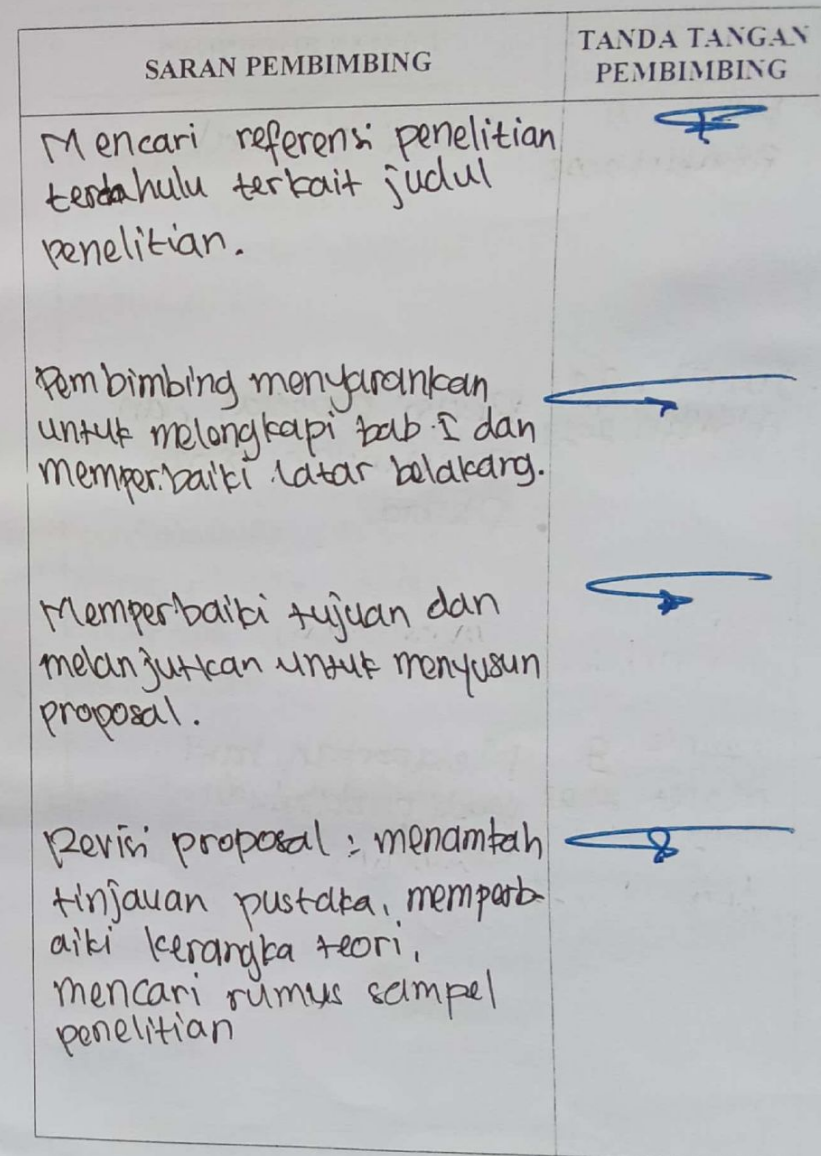 SARAN PEMBIMBING
TANDA TANGAN
PEMBIMBING
Mencari referensi penelitian
terdahulu terkait judul
penelitian.
Pembimbing menyarankan
untuk melengkapi bab I dan
memperbaiki latar belakang.
Memperbaiki tujuan dan
melanjutkan untuk menyusun
proposal.
Revisi proposal : menambah
tinjauan pustaka, memperb-
aiki kerangka teori,
mencari rumus sampel
penelitian